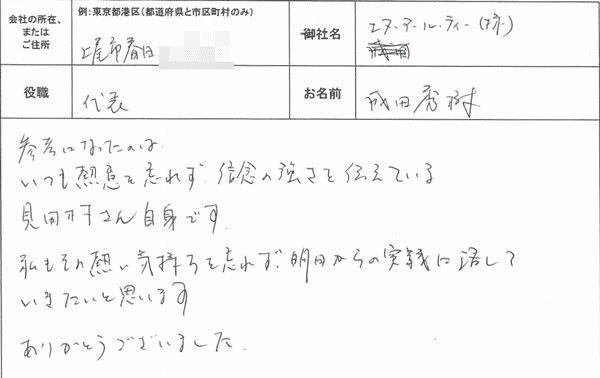 会社の所在、
または
ご住所
例:東京都港区(都道府県と市区町村のみ)
上尾市春日
御社名
エヌ・アール・ティー(株)
役職
代表
お名前
成田秀樹
参考になったのは、
いつも熱意を忘れず、信念の強さを伝えている
見田村さん自身です。
私もその熱い気持ちを忘れず、明日からの実践に活して
いきたいと思います
ありがとうございました。